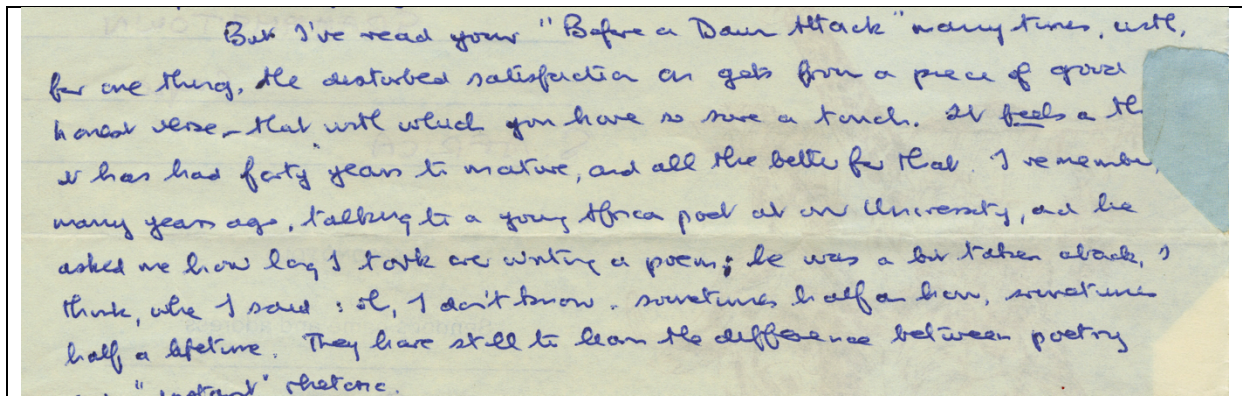 But I've read your "Before a Dawn Attack" many times, with,
for one thing, the disturbed satisfaction one gets from a piece of good
honest verse – that with which you have so sure a touch. It feels as th
it has had forty years to mature, and all the better for that. I remember,
many years ago, talking to a young African poet at our University, and he
asked me how long I took over writing a poem; he was a bit taken aback, I
think, when I said: oh, I don't know. Sometimes half an hour, sometimes
half a lifetime. They have still to learn the difference between poetry
"instant" rhetoric.